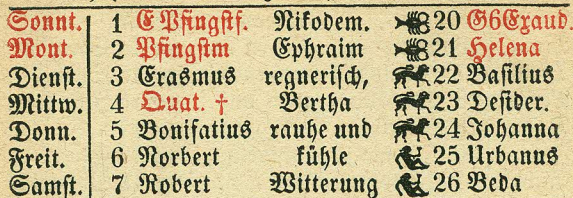 Sonnt. 1 E Pfingstf. Nikodem. 20 G6Exaud.
Mont. 2 Pfingstm Ephraim 21 Helena
Dienst. 3 Erasmus regnerisch, 22 Basilius
Mittw. 4 Quat. † Bertha 23 Desider.
Donn. 5 Bonifatius rauhe und 24 Johanna
Freit. 6 Norbert kühle 25 Urbanus
Samst. 7 Robert Witterung 26 Beda